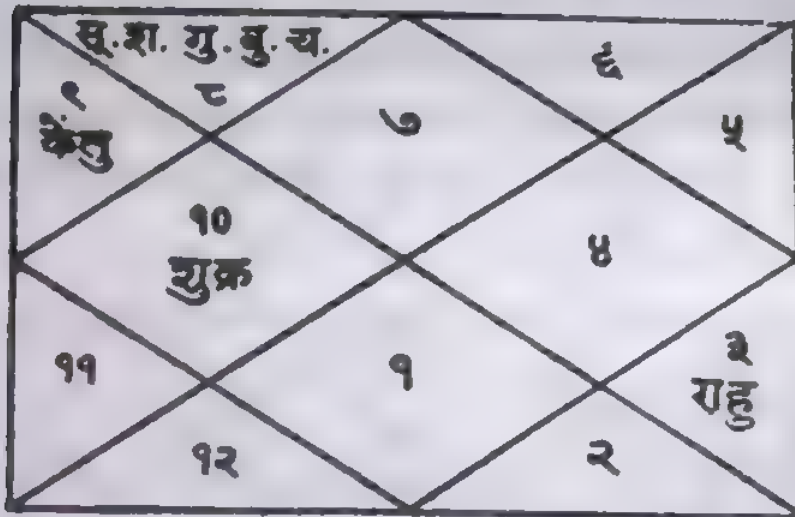 सू.श. गु.बु.च.
८
६
९
केतु
७
५
१०
शुक्र
४
११
१
३
राहु
१२
२